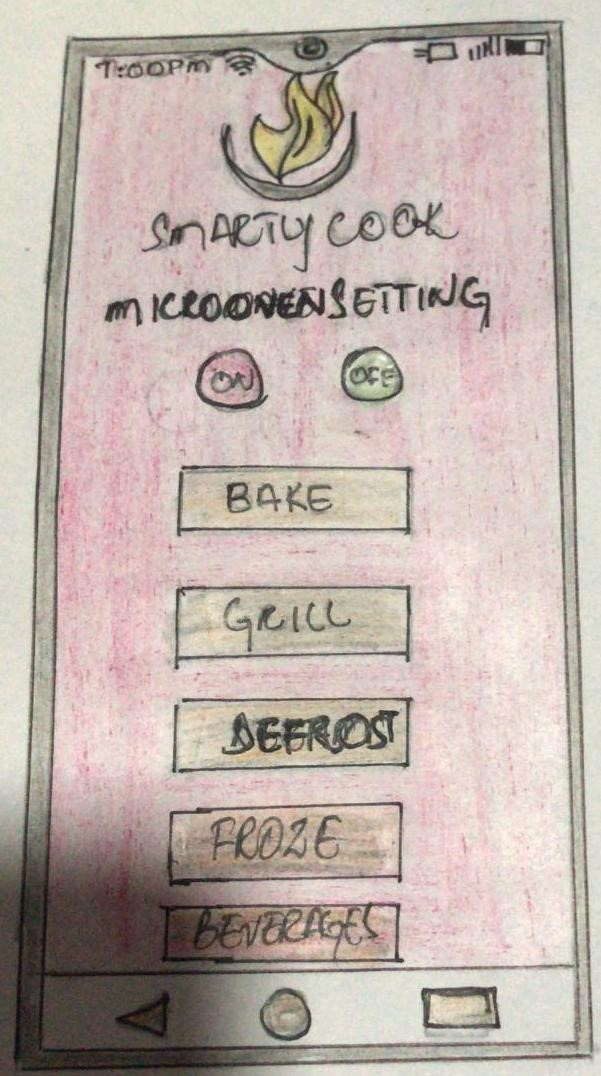 7:00PM
SMARTLY COOK
MICROOVEN SETTING
ON OFF
BAKE
GRILL
DEFROST
FROZE
BEVERAGES